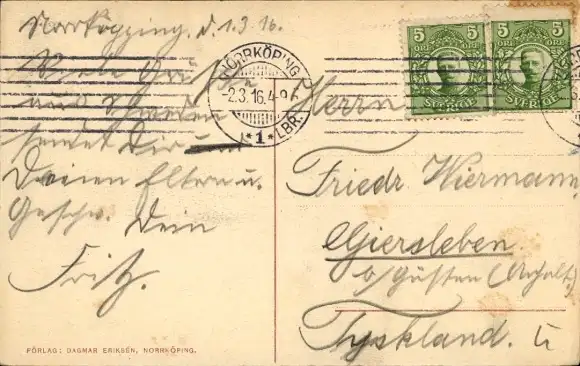 Norrköping, d. 1.3.16.
Viele Grüße
und
sendet Dir und
Deinen Eltern u.
Geschw. Dein
Fritz.
FÖRLAG: DAGMAR ERIKSEN, NORRKÖPING.
NORRKÖPING
-2.3.16.4-9E
*1* LBR.
5 5
ÖRE
SVERIGE
5 5
ÖRE
SVERIGE
Herrn
Friedr. Wiermann,
Giersleben.
b/Güsten (Anhalt.)
Tyskland.